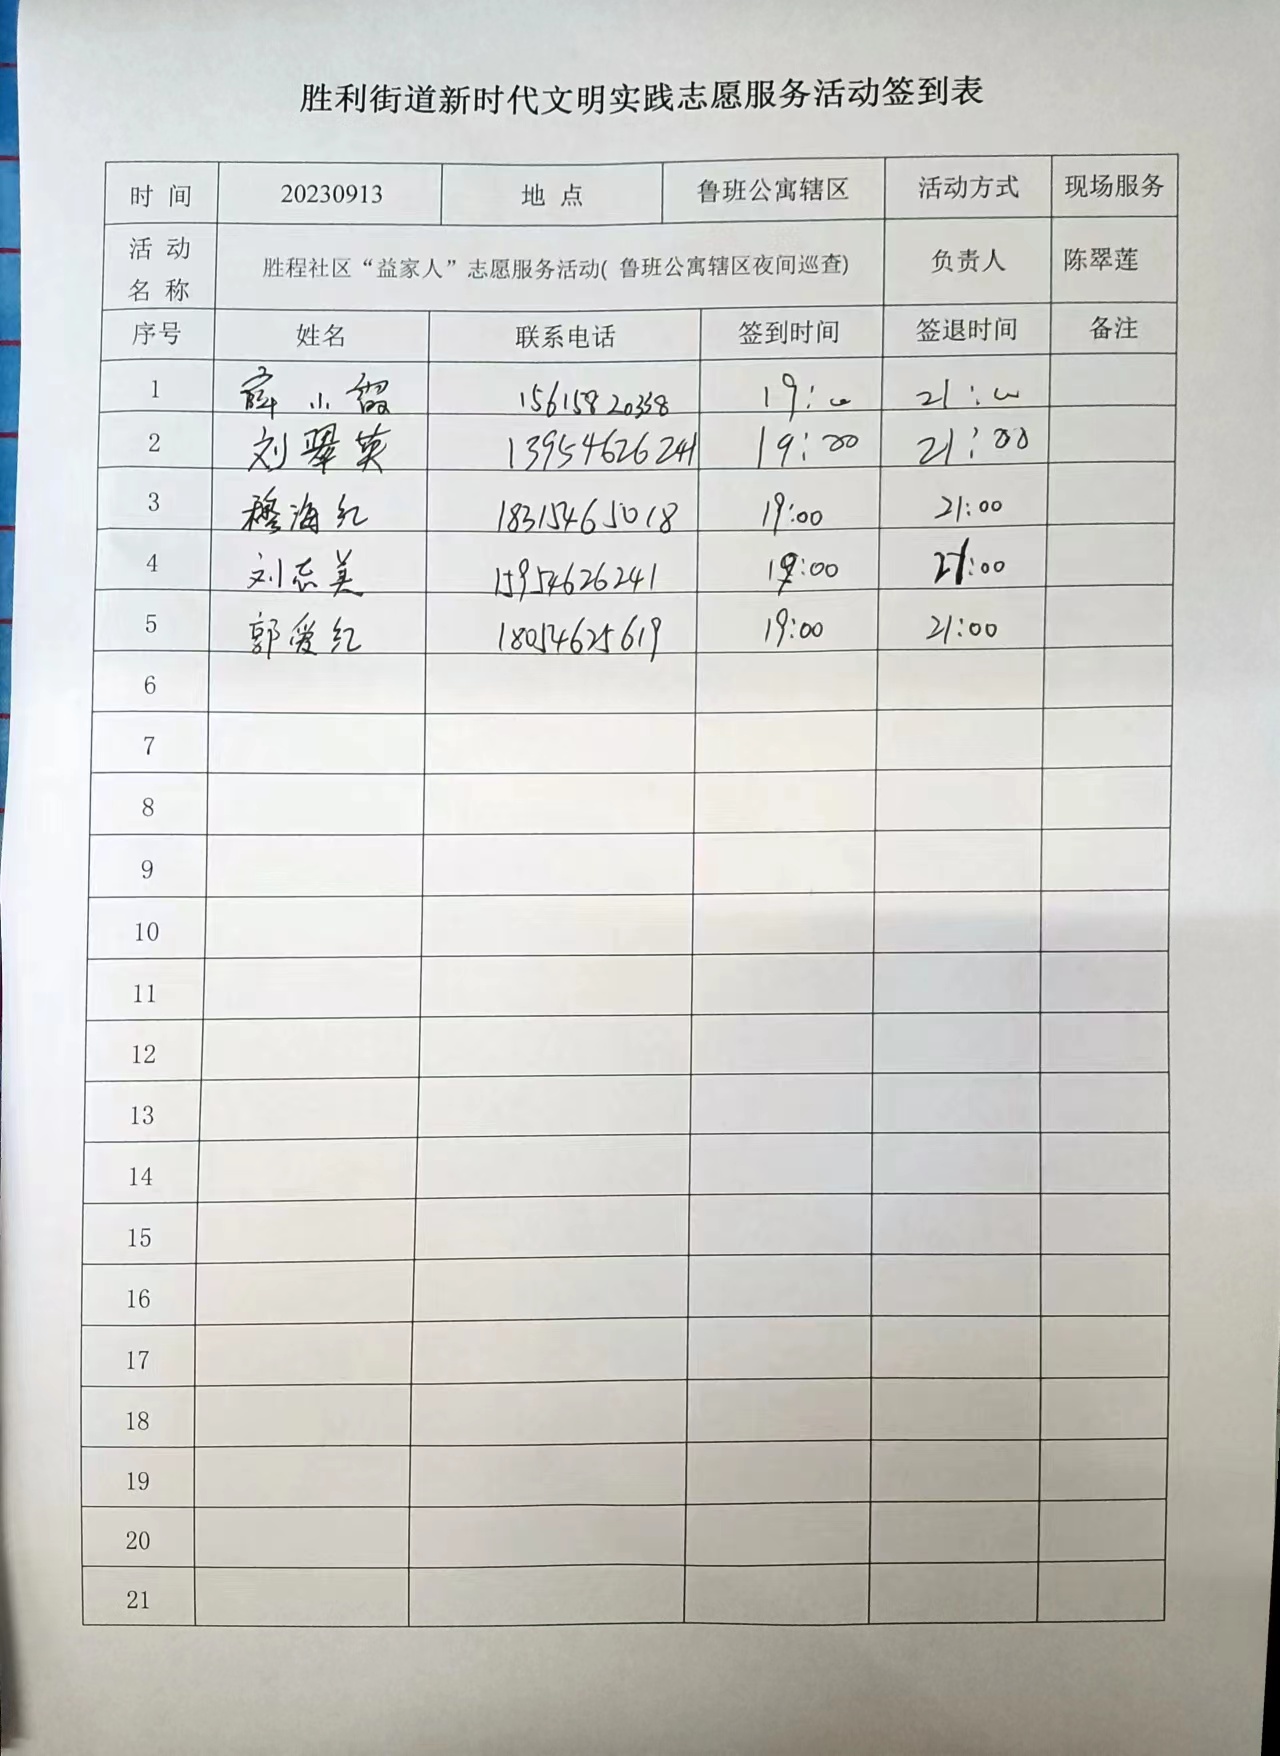 胜利街道新时代文明实践志愿服务活动签到表
时 间 20230913 地 点 鲁班公寓辖区 活动方式 现场服务
活 动 名 称 胜程社区“益家人”志愿服务活动( 鲁班公寓辖区夜间巡查) 负责人 陈翠莲
序号 姓名 联系电话 签到时间 签退时间 备注
1 薛小霞 15615820358 19:00 21:00
2 刘翠英 13954626241 19:00 21:00
3 穆海红 18315465018 19:00 21:00
4 刘志美 15954626241 19:00 21:00
5 郭爱红 18054625619 19:00 21:00
6
7
8
9
10
11
12
13
14
15
16
17
18
19
20
21